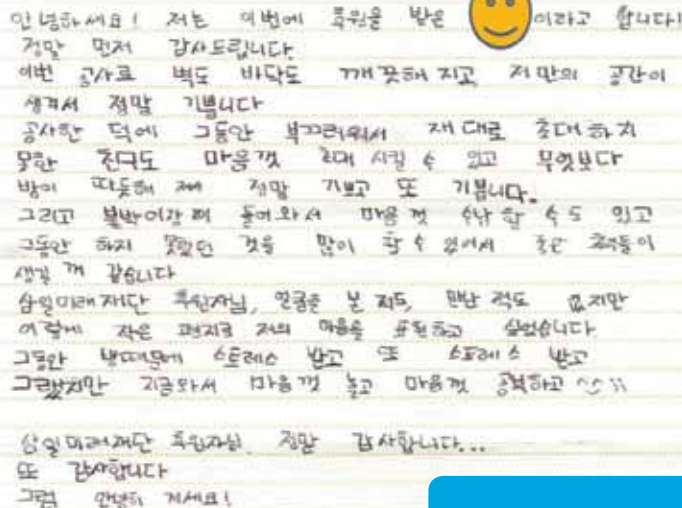 안녕하세요! 저는 이번에 후원을 받은 이라고 합니다!
정말 먼저 감사드립니다.
이번 공사로 벽도 바닥도 깨끗해 지고 저만의 공간이
생겨서 정말 기쁩니다
공사한 덕에 그동안 부끄러워서 재대로 초대하지
못한 친구도 마음껏 초대 시킬 수 있고 무엇보다
방이 따듯해 져서 정말 기쁘고 또 기쁩니다.
그리고 붙박이장 들어와서 마음껏 수납 할 수도 있고
그동안 하지 못했던 것을 많이 할 수 있어서 좋은 추억들이
생길 꺼 같습니다
삼일미래재단 후원자님, 얼굴을 본 적도, 만난 적도 없지만
이렇게 작은 편지로 저의 마음을 표현하고 싶었습니다
그동안 방때문에 스트레스 받고 또 스트레스 받고
그랬지만 지금와서 마음껏 놀고 마음껏 공부하고 ^^
삼일미래재단 후원자님 정말 감사합니다...
또 감사합니다
그럼 안녕히 계세요!